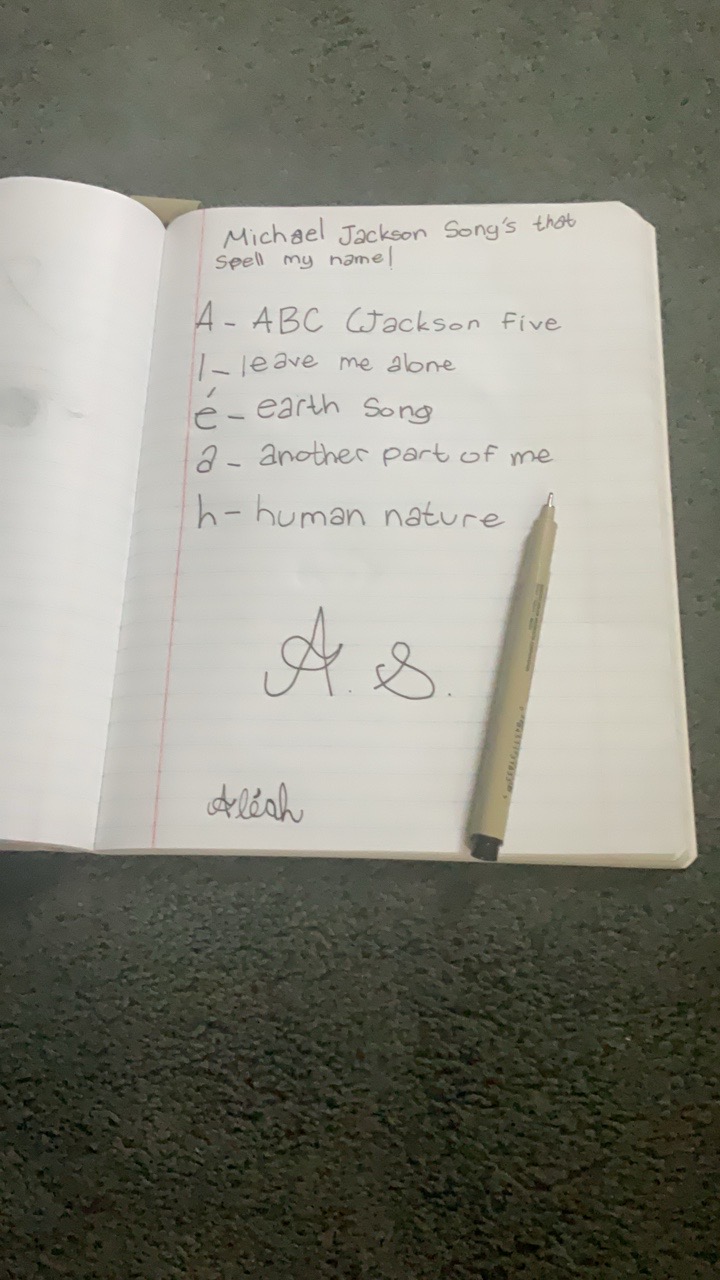 Michael Jackson Song's that
spell my name!
A - ABC (Jackson Five
l - leave me alone
é - earth Song
a - another part of me
h - human nature
A. S.
Aléah